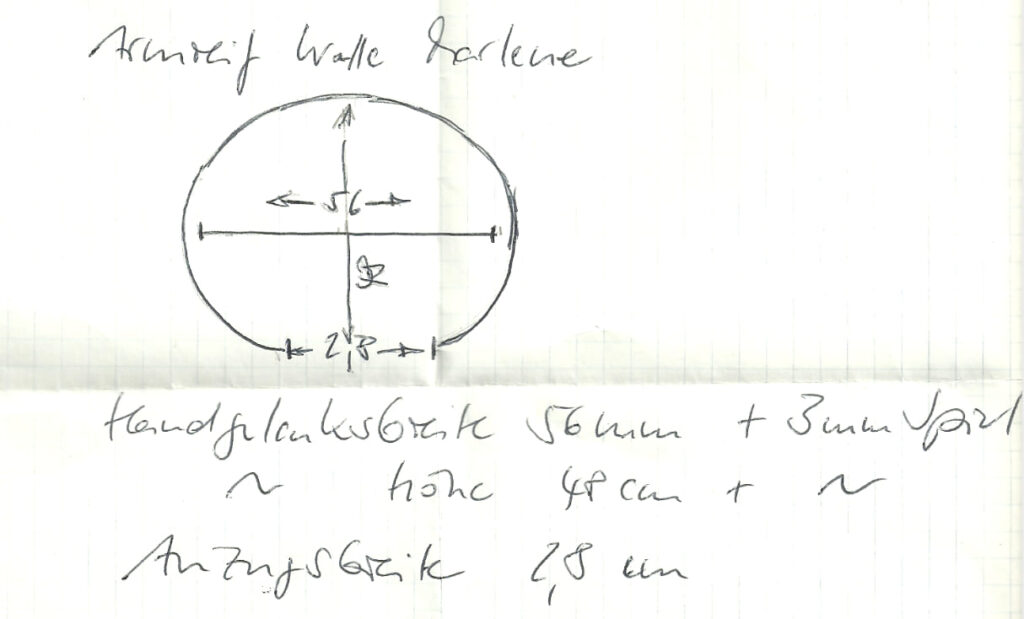 Armreif Walle Marlene
56
2,8
Handgelenksbreite 56 mm + 3mm Spiel
~ höhe 48 cm + ~
Anzugsbreite 2,8 cm